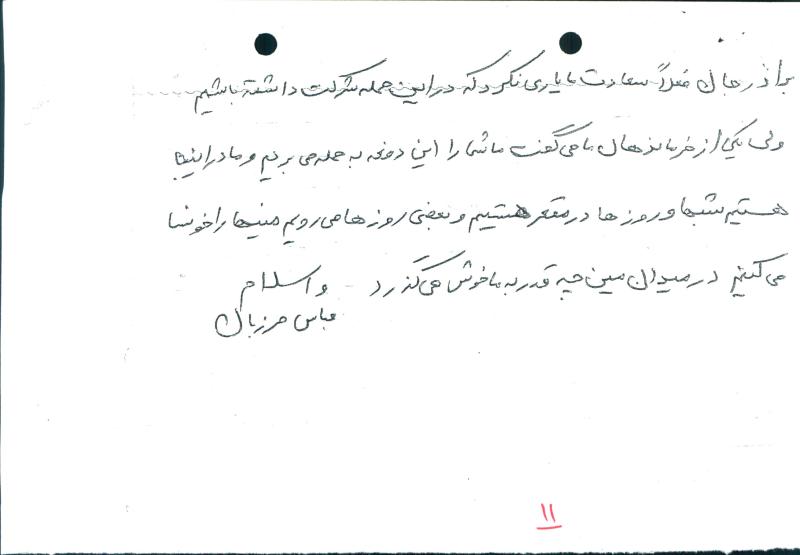 برادر جان فعلاً سعادت ما یاری نکرد که در این حمله شرکت داشته باشیم
ولی یکی از فرماندهان ما می گفت ما شما را این دفعه به حمله می بریم و ما در اینجا
هستیم شبها و روزها در مقر هستیم و بعضی روزها می رویم مینها را خونسا
می کنیم در میدان مین چه قدر به ما خوش می گذرد و اسلام
عباس مرزبان
۱۱